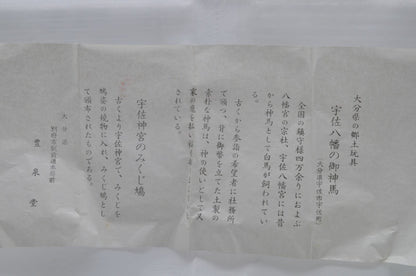 大分県の郷土玩具
宇佐八幡の御神馬
（大分県宇佐市宇佐町）
全国の鎮守様四万余りにおよぶ
八幡宮の宗社、宇佐八幡宮には昔
から神馬として白馬が飼われてい
る。
古くから参詣の希望者に社務所
で頒つ、背に御幣を立てた土製の
素朴な神馬は、神の使いとして又
家の
されている。
宇佐神宮のみくじ鳩
古くより宇佐神宮で、みくじを
鳩姿の焼物に入れ、みくじ鳩とし
て頒布されたものである。
大分県
別府市
豊泉堂